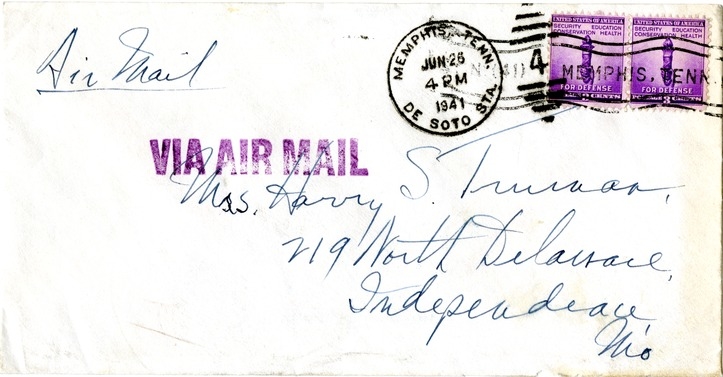 Air Mail
MEMPHIS, TENN.
JUN 26
4 PM
1941
DE SOTO STA.
4
MEMPHIS, TENN.
UNITED STATES OF AMERICA
SECURITY EDUCATION
CONSERVATION HEALTH
FOR DEFENSE
CENTS
UNITED STATES OF AMERICA
SECURITY EDUCATION
CONSERVATION HEALTH
FOR DEFENSE
POSTAGE 3 CENTS
VIA AIR MAIL
Mrs. Harry S. Truman,
219 North Delaware,
Independence
Mo